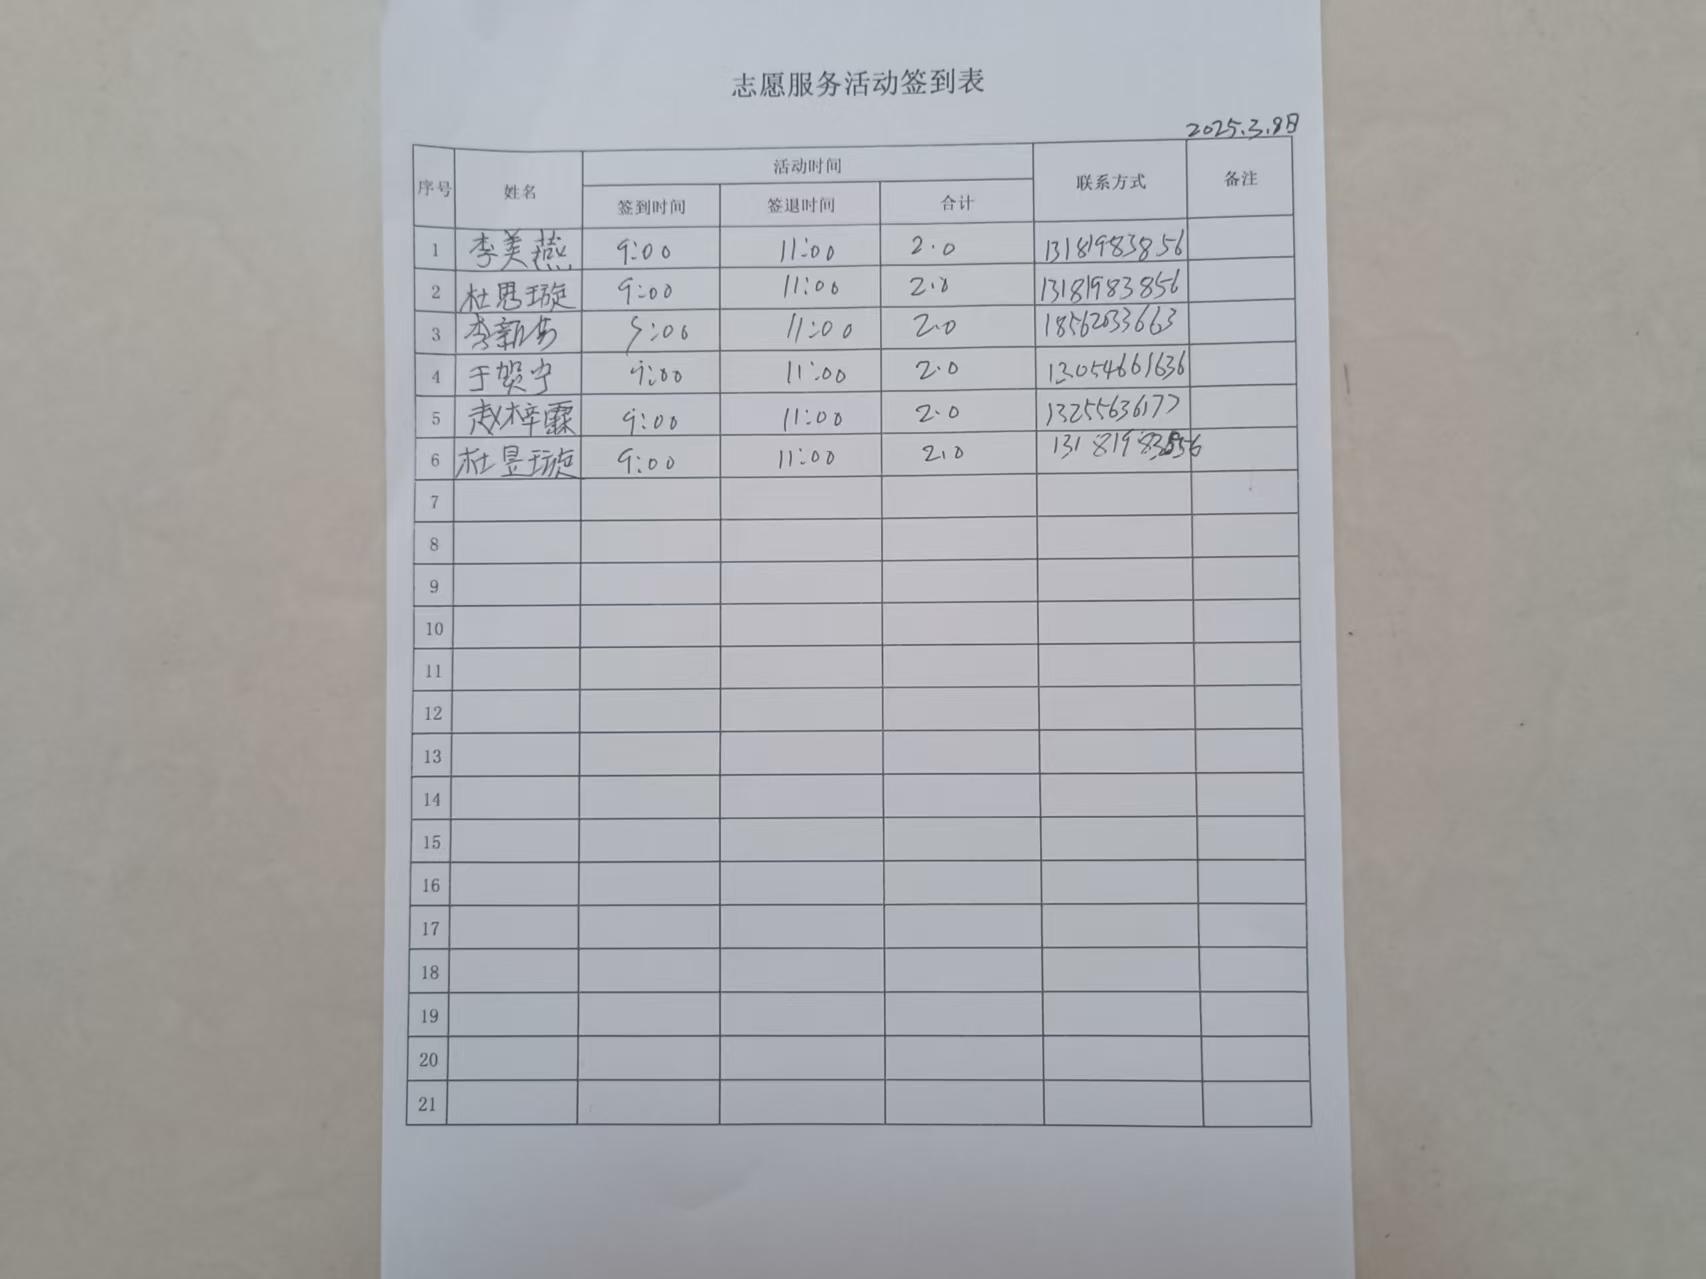 志愿服务活动签到表
2025.3.8日
序号 姓名 活动时间 联系方式 备注
签到时间 签退时间 合计
1 李美燕 9:00 11:00 2.0 13181983856
2 杜思璇 9:00 11:00 2.0 13181983856
3 李新 9:00 11:00 2.0 18562033663
4 于贺宁 9:00 11:00 2.0 13054661636
5 赵梓霖 9:00 11:00 2.0 13255636177
6 杜昱璇 9:00 11:00 2.0 13181983856
7
8
9
10
11
12
13
14
15
16
17
18
19
20
21